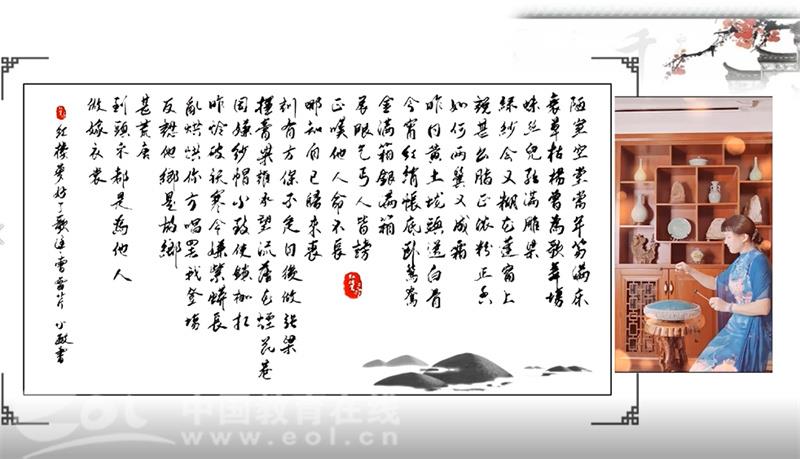 陋室空堂當年笏滿床
衰草枯楊曾為歌舞場
蛛丝兒結滿雕梁
綠紗今又糊在蓬窗上
說甚么脂正濃粉正香
如何兩鬢又成霜
昨日黄土壠頭送白骨
今宵紅綃帳底卧鴛鴦
金滿箱銀滿箱
展眼乞丐人皆謗
正嘆他人命不長
哪知自己歸來喪
訓有方保不定日後做強梁
擇膏粱誰承望流落在煙花巷
因嫌紗帽小致使鎖枷扛
昨怜破袄寒今嫌紫蟒長
亂烘烘你方唱罷我登場
反認他鄉是故鄉
甚荒唐
到頭來都是為他人
做嫁衣裳
红楼夢好了歌注 小敏書
eol 中国教育在线
www.eol.cn